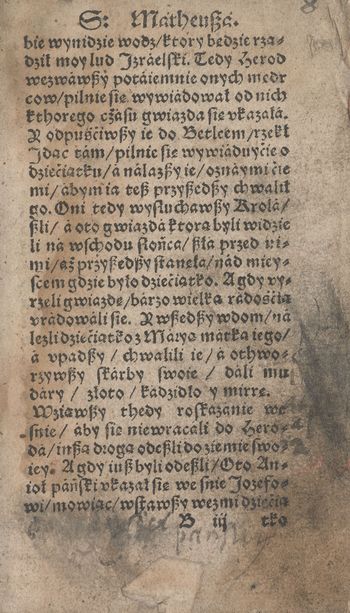 S: Matheusza.
bie wynidzie wodz/ktory bedzie rzą⸗
dził moy lud Izraelski. Tedy Herod
wezwawszy potáiemnie onych medr
cow/pilnie się wywiádował od nich
kthorego czásu gwiazda się vkazáłá.
Y odpuśćiwszy ie do Betleem/rzekł
Idąc tám/pilnie się wywiáduyćie o
dziećiątku/á nálazszy ie/oznáymi ćie
mi/ábym iá też przyszedszy chwalił
go. Oni tedy wysłuchawszy Krolá/
szli/á oto gwiazdá ktorą byli widzie
li ná wschodu słońcá/szłá przed ni⸗
mi/áż przyszedszy stánęłá/nád miey⸗
scem gdzie było dziećiątko. A gdy vy⸗
rzeli gwiazdę/bárzo wielką rádośćią
vrádowáli się. Y wszedszy w dom/ná
leźli dziećiątko z Máryą mátką iego/
á vpadszy/chwalili ie/á othwo⸗
rzywszy skárby swoie/dáli mu
dáry/złoto/kádzidło y mirrę.
Wziąwszy thedy roskazánie we
śnie/áby się niewracáli do Hero⸗
dá/inszą drogą odeszli do ziemie swo⸗
iey. A gdy iusz byli odeszli/Oto An⸗
ioł páński vkazał się we śnie Jozefo⸗
wi/mowiąc/wstawszy weźmi dziećią
B iij tko